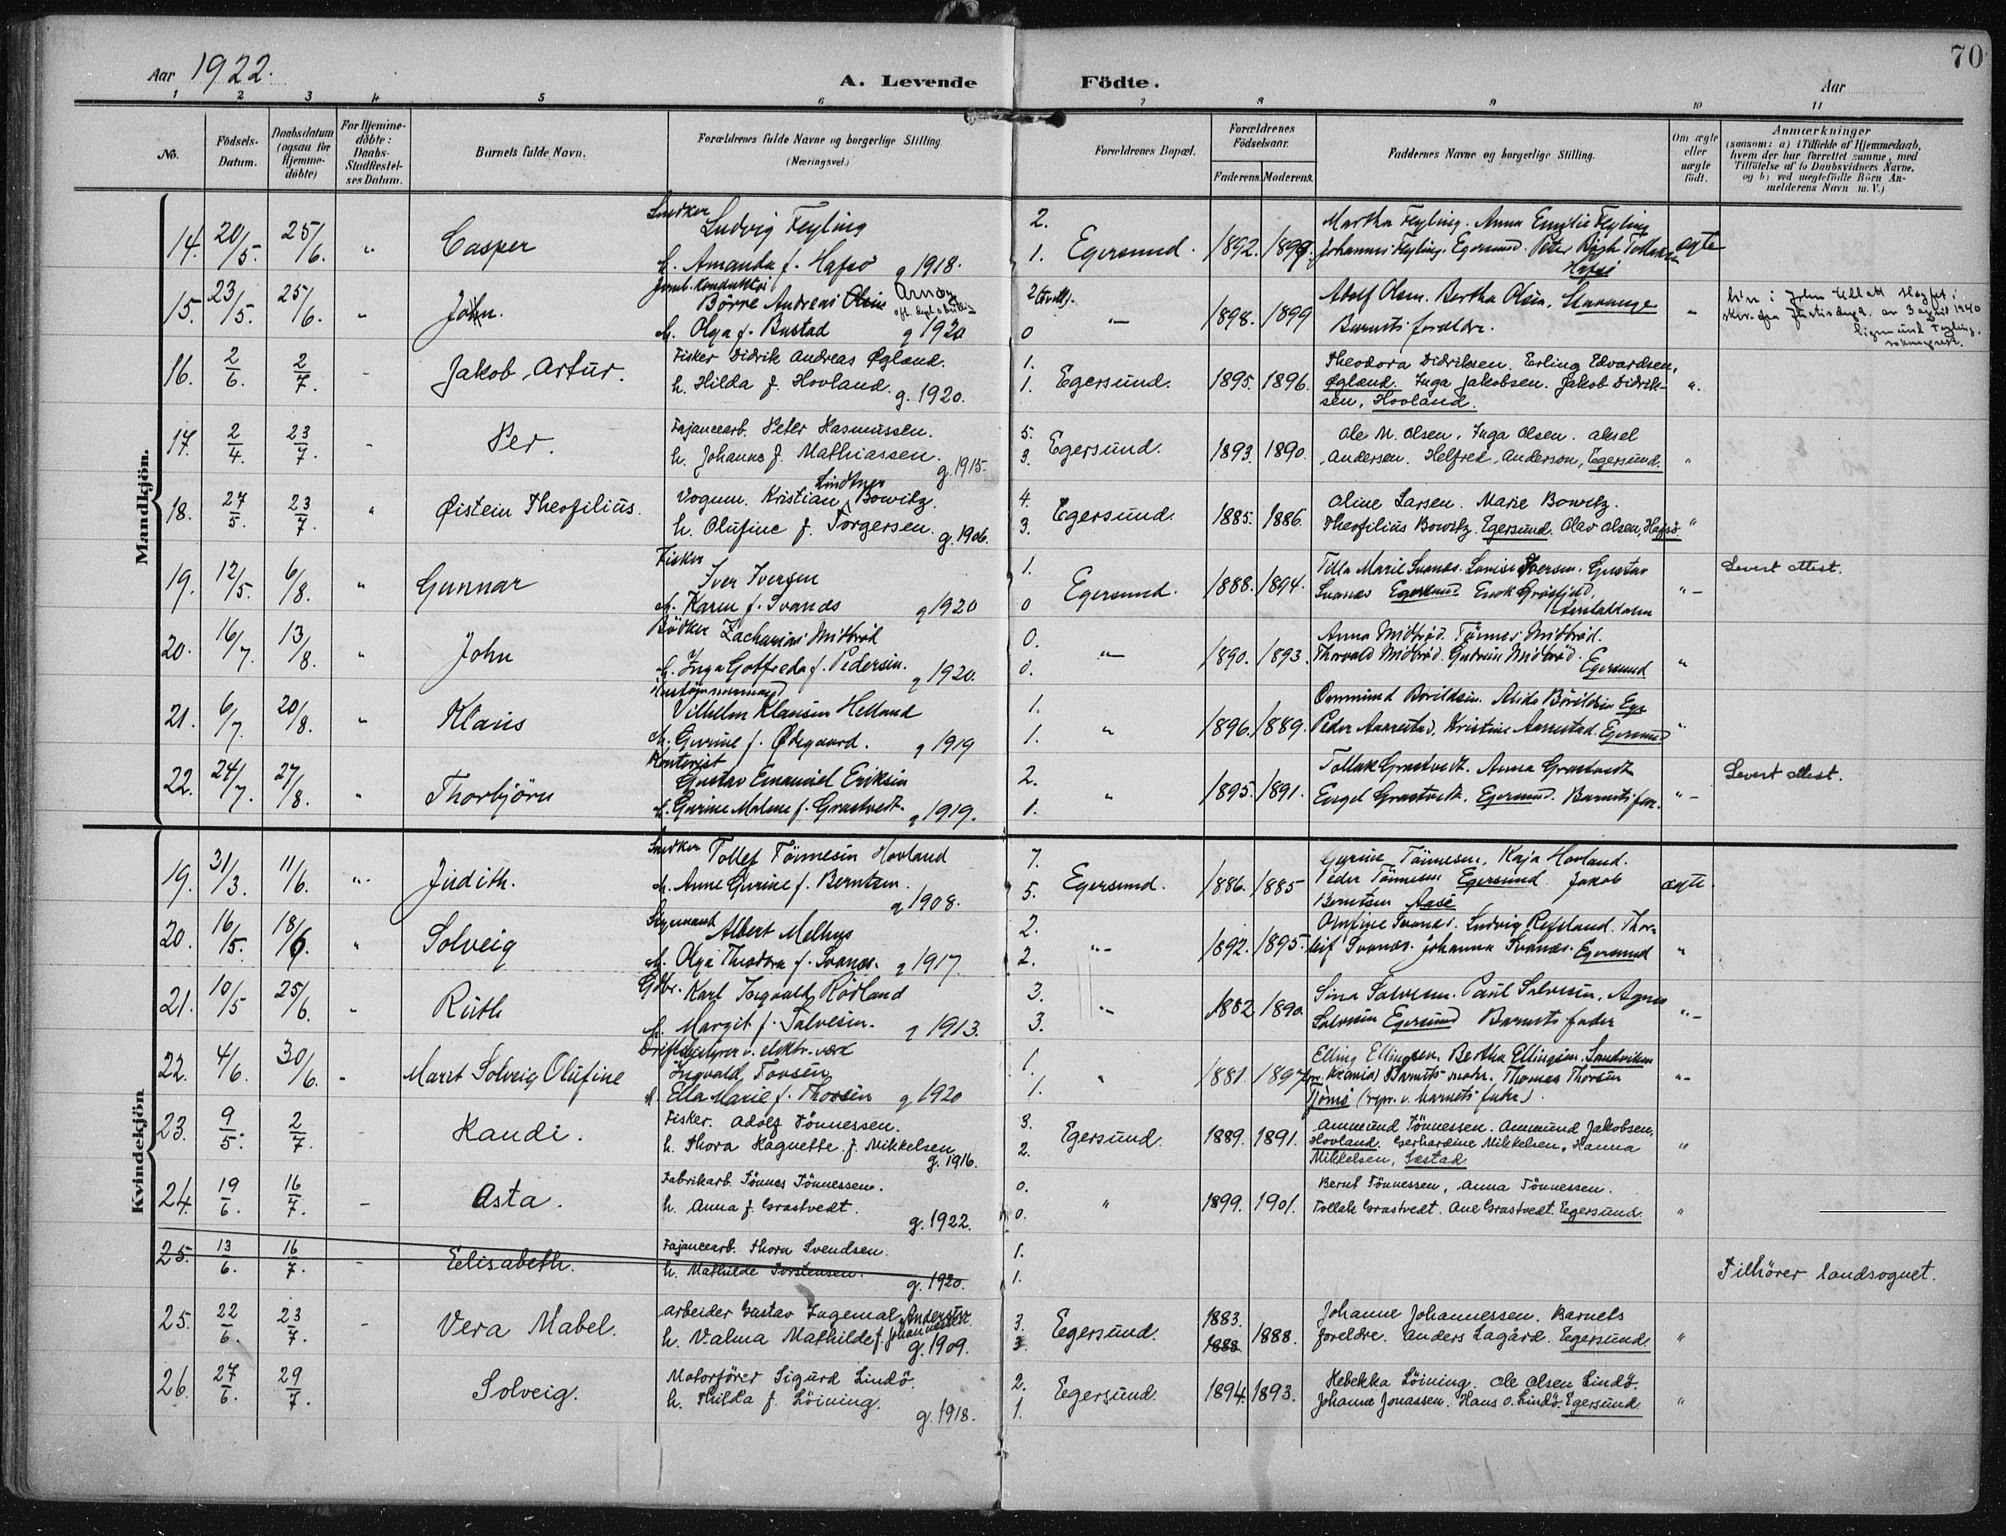 70
Aar 1922.
A. Levende Födte.
Aar
1 2 3 4 5 6 7 8 9 10 11
No.
Födsels-
Datum.
Daabsdatum
(ogsaa for
Hjemme-
döbte)
For Hjemme-
döbte:
Daabs-
Stadfæstel-
ses Datum.
Barnets fulde Navn.
Forældrenes fulde Navne og borgerlige Stilling
(Næringsvei.)
Forældrenes Bopæl.
Forældrenes
Födselsaar.
Faderens. Moderens.
Faddernes Navne og borgerlige Stilling.
Om ægte
eller
uægte
födt.
Anmærkninger
(saasom: a) i Tilfælde af Hjemmedaab,
hvem der har forrettet samme, med
Tilföielse af to Daabsvidners Navne,
og b) ved uægtefödte Börn An-
melderens Navn m. V.)
Mandkjön.
14. 20/5. 25/6. " Casper
Snedker
Ludvig Feyling
h. Amanda f. Hafsö g 1918.
2.
1. Egersund. 1892. 1899.
Martha Feyling. Anna Emilie Feyling
Johannes Feyling. Egersund. Peter Tollaksen
Hafsö
ægte
15. 23/5. 25/6. " John.
Börre Andreas Olsen Arnöy
h. Olga f. Bustad g 1920
2
0 " 1898. 1899
Adolf Olsen. Bertha Olsen. Stavanger
Barnets forældre.
"
16. 2/6. 2/7. - Jakob Artur.
Fisker Didrik Andreas Øgland.
h. Hilda f. Hovland. g. 1920.
1.
1. Egersund. 1895. 1896.
Theodora Didriksen. Erling Edvardsen,
Øgland. Inga Jakobsen. Jakob Didrik-
sen, Hovland.
".
17. 2/4. 23/7. - Per.
Fajancearb. Peter Rasmussen.
h. Johanne f. Mathiassen. g. 1915.
5.
3. Egersund. 1893. 1890.
Ole M. Olsen, Inga Olsen. Aksel
Andersen. Helfred Anderson, Egersund.
"
18. 27/5. 23/7. " Øistein Theofilius.
Lindtner
Vognm. Kristian Bowitz.
h. Olufine f. Torgersen. g. 1906.
4.
3. Egersund. 1885. 1886.
Oline Larsen. Marie Bowitz.
Theofilius Bowitz, Egersund. Olav Olsen, Hafsö.
"
19. 12/5. 6/8. " Gunnar
Fisker
Iver Iversen
h. Karen f. Svanes g 1920
1.
0 Egersund. 1888. 1894.
Tilla Marie Svanes. Lovise Iversen. Gustav
Svanes Egersund Enok Grösfjeld,
" -
Levert attest.
20. 16/7. 13/8. " John
Bödker Zacharias Midbröd
h. Inga Gotfreda f. Pedersen. g 1920.
0.
0. " 1890. 1893.
Anna Midbröd. Tönnes Midbröd.
Thorvald Midbröd. Gudrun Midbröd. Egersund
"
21. 6/7. 20/8. " Klaus
Vilhelm Klausen Helland
h. Gurine f. Ødegaard. g 1919
1.
1. " 1896. 1889.
Ommund Borildsen. Alida Börildsen Egr
Peder Aarrestad, Kristine Aarrestad. Egersund
"
22. 24/7. 27/8. " Thorbjörn
Kontorist
Gustav Emanuel Eriksen
h. Gurine Malene f. Grastvedt g 1919.
2.
1. " 1895. 1891.
Tollak Grastvedt. Anna Grastvedt
Engel Grastvedt. Egersund. Barnets far.
" -
Levert attest.
Kvindekjön
19. 31/3. 11/6. " Judith.
Snedker Tollef Tönnesen Hovland
h. Anne Gurine f. Berntsen. g 1908.
7.
5. Egersund. 1886. 1885
Gyrine Tönnesen, Kaja Hovland.
Peder Tönnesen Egersund. Jakob
Berntsen Aase
ægte.
20. 16/5. 18/6. " Solveig
Styrmand Albert Melhus
h. Olga Theodora f. Svanes. g 1917.
2.
2. " 1892. 1895.
Olufine Svanes. Ludvig Refsland. Thor-
leif Svanæs. Johanna Svanæs. Egersund
"
21. 10/5 25/6. - Ruth
Gdbr. Karl Ingvald Rödland
h. Margit f. Salvesen. g 1913.
3.
3. " 1882 1890.
Sina Salvesen. Paul Salvesen, Agnes
Salvesen Egersund Barnets fader
" -
22. 4/6. 30/6. - Marit Solveig Olufine
Driftsbestyrer v. elektr. værk
Ingvald Tovsen
h. Ella Marie f. Thorsen g 1920
1.
1. " 1881. 1897
Elling Ellingsen, Bertha Ellingsen. Sandviken
Barnets moder. Thomas Thorsen
Tjömö (repr. v. barnets fader).
" -
23. 9/5. 2/7. - Randi.
Fisker. Adolf Tönnessen.
h. Thora Ragnette f. Mikkelsen g. 1916.
3.
2. Egersund. 1889. 1891.
Ommund Tönnessen. Ommund Jakobsen,
Hovland. Gerhardine Mikkelsen, Hanna
Mikkelsen, Sæstad
"
24. 19/6. 16/7. - Asta.
Fabrikarb. Tönnes Tönnessen.
h. Anna f. Grastvedt. g. 1922.
0.
0. " 1899. 1901.
Berul Tönnessen, Anna Tönnessen.
Tollak Grastvedt. Ane Grastvedt. Egersund.
"
25. 13/6. 16/7. - Elisabeth.
Fajancearb. Thorn Svendsen.
h. Mathilde Torstensen. g. 1920.
1.
1.
Tilhörer landsognet.
25. 22/6. 23/7. - Vera Mabel.
Arbeider Gustav Ingemal Anderström
h. Valma Mathilde f. Johannessen. g. 1909.
3.
3. Egersund. 1883. 1888 1888.
Johanne Johannessen. Barnets
foreldre. Anders Lagård. Egersund.
"
26. 27/6. 29/7. - Solveig.
Motorförer Sigurd Lindö.
h. Thilda f. Löining. g. 1918.
2.
1. Egersund. 1894. 1893.
Rebekka Löining. Ole Olsen Lindö.
Johanne Jonassen. Hans O. Lindö. Egersund.
"